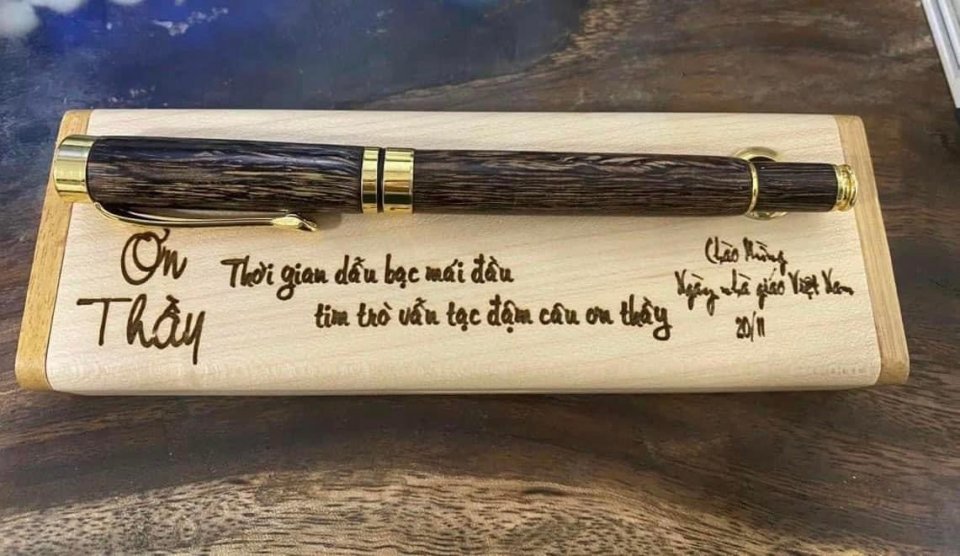 Ơn
Thầy
Thời gian dẫu bạc mái đầu
tim trò vẫn tạc đậm câu ơn thầy
Chào Mừng
Ngày nhà giáo Việt Nam
20/11